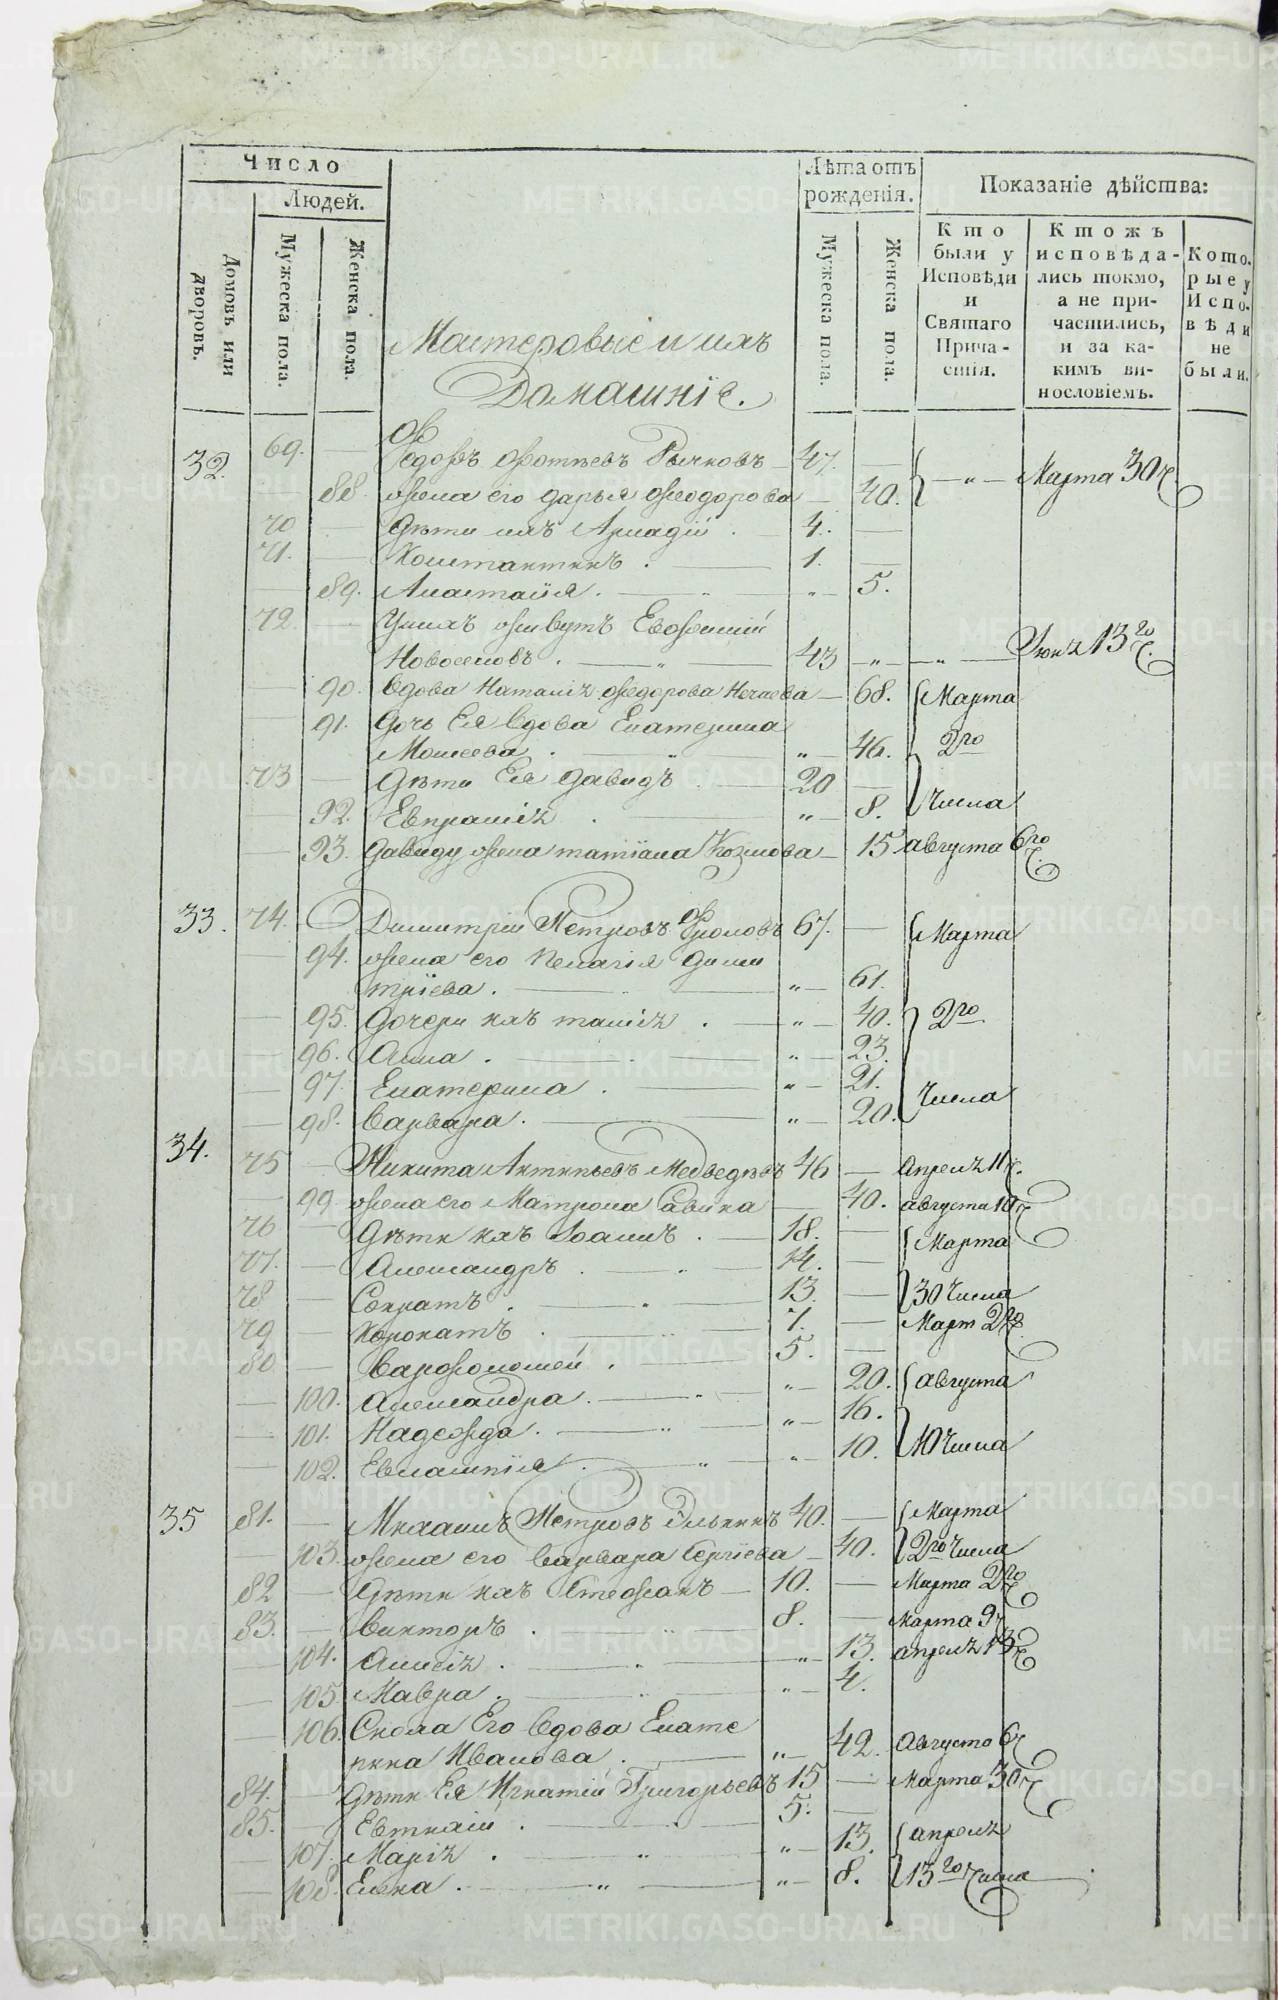 Число
Людей.
Домовъ или дворовъ.
Мужеска пола.
Женска пола.
Лѣта отъ рожденія.
Мужеска пола.
Женска пола.
Показаніе дѣйства:
Кто были у Исповѣди и Святаго Прича-стія.
Ктожъ исповѣда-лись токмо, а не при-частились, и за ка-кимъ ви-нословіемъ.
Кото-рые у Испо-вѣди не были.
Мастеровые и ихъ
Домашніе.
32. 69. — Федоръ Фотіевъ Рычковъ — 47. — — „ — Марта 30 ч.
88. жена его Дарья Феодорова — 40.
70 — Дѣти ихъ Аркадій . — 4. —
71. — Константинъ . — 1. —
— 89. Анастасія . — „ — „ — 5.
72. — У нихъ живутъ Евфимій
Новоселовъ . — „ — 43 — „ — „ — 13 го ч.
— 90. Вдова Наталія Федорова Нечаева — 68. Марта
— 91. Дочь Ея Вдова Екатерина
Моисеева . — „ — „ — 46. 2 го
73 — Дѣти Ея Давидъ . — 20 — Числа
92. Евпраксія . — „ — 8.
— 93. Давиду жена Татіана Козмова — 15 августа 6 го ч.
33. 74. Димитрій Петровъ Фроловъ 67. — Марта
— 94. жена его Пелагія Дими
тріева . — „ — 61.
— 95. Дочери ихъ Таисія . — „ — 40. 2 го
— 96. Анна . — „ — 23.
— 97. Екатерина . — „ — 21. Числа
— 98. Варвара . — „ — 20.
34. 75 — Никита Антипьевъ Медведевъ 46 — Апреля 11 ч.
— 99. жена его Матрона Савина — 40. августа 10 ч
76 — Дѣти ихъ Іоаннъ . — 18. — Марта
77. — Александръ . — 14. —
78 — Сократъ . — „ — 13. — 30 Числа
79 — Харонатъ . — „ — 7. — Март 2 го
80 — Варфоломей . — 5. —
— 100. Александра . — „ — „ — 20. августа
— 101. Надежда . — „ — „ — 16.
— 102. Евлампія . — „ — „ — 10. 10 Числа
35 81. — Михаилъ Петровъ Элькинъ 40. — Марта
— 103. жена его Варвара Сергіева — 40. 2 го Числа
82 — Дѣти ихъ Стефанъ — 10. — Марта 2 го
83. — Викторъ . — „ — 8. — Марта 9 ч
— 104. Анисія . — „ — „ — 13. апреля 13 ч
— 105 Мавра . — „ — „ — 4.
— 106. Сноха Его Вдова Екате
рина Иванова . — „ — 42. Августа 6 ч
84. — Дѣти Ея Игнатій Григорьевъ 15 — Марта 30 ч
85. — Евтихій . — 5. —
— 107. Марія . — „ — „ — 13. апреля
— 108. Елена . — „ — „ — 8. 13 го числа
METRIKI.GASO-URAL.RU